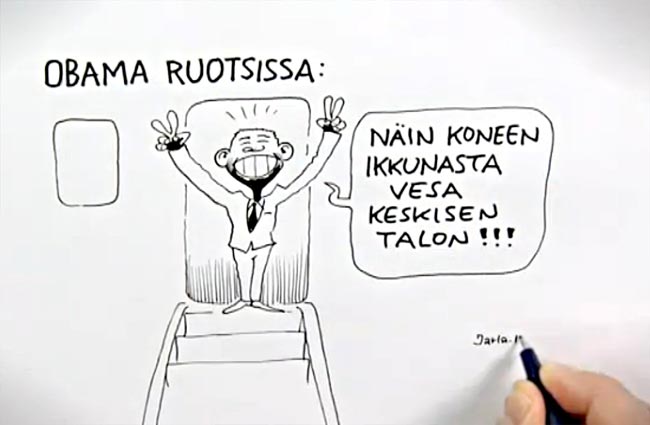 OBAMA RUOTSISSA:
NÄIN KONEEN
IKKUNASTA
VESA
KESKISEN
TALON!!!